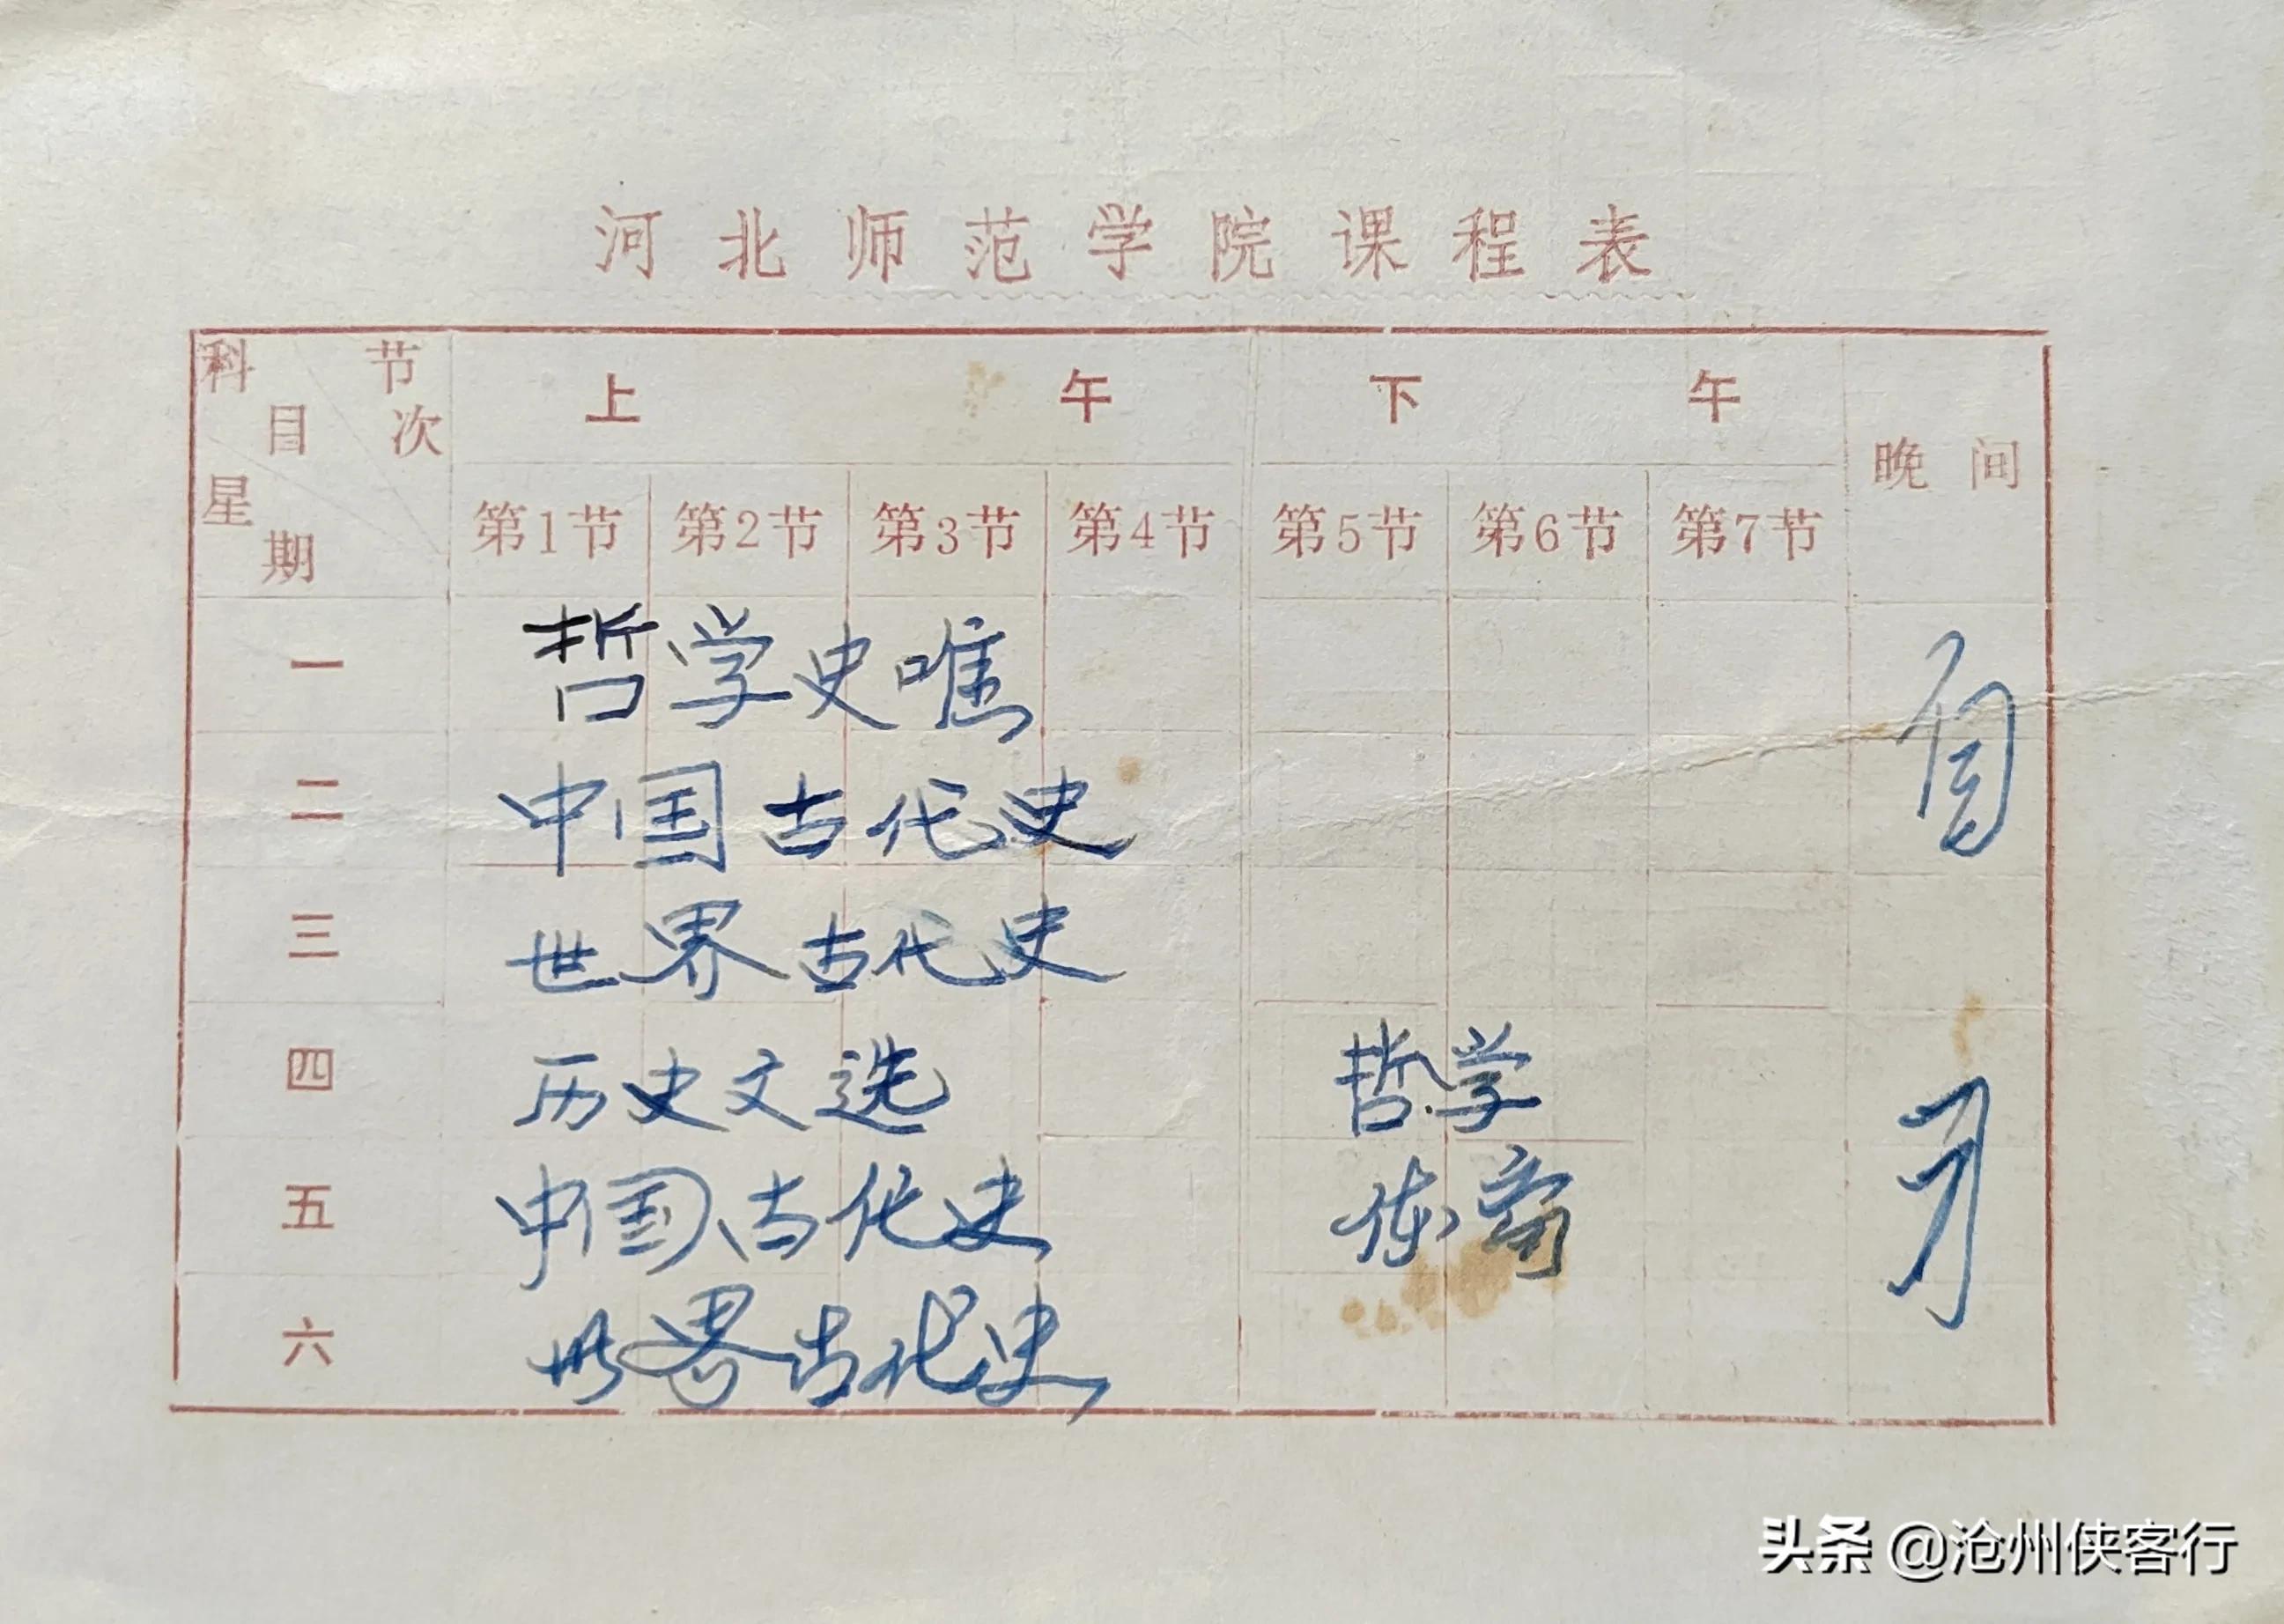 河北师范学院课程表
科目 节次 星期
上午 下午 晚间
第1节 第2节 第3节 第4节 第5节 第6节 第7节
一 哲学史唯 自
二 中国古代史
三 世界古代史
四 历史文选 哲学 习
五 中国古代史 体育
六 世界古代史
头条 @沧州侠客行